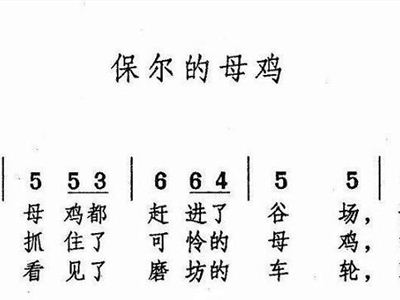 保尔的母鸡
5 5 3 | 6 6 4 | 5 5
母 鸡都 赶 进了 谷 场，
抓 住了 可 怜的 母 鸡，
看 见了 磨 坊的 车 轮，